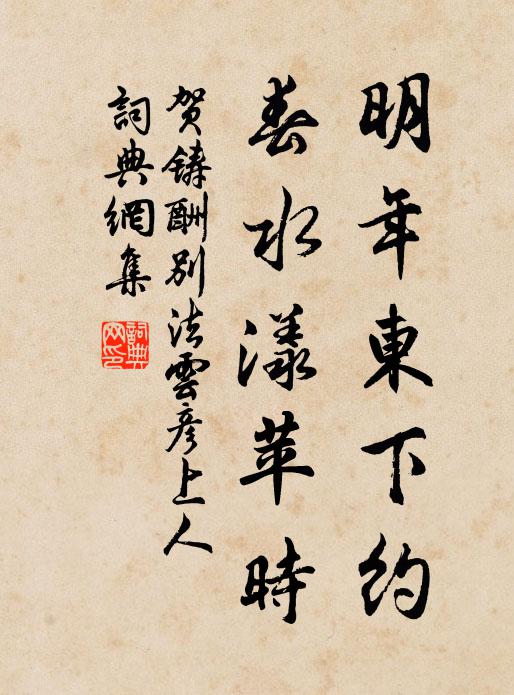 明年東下約
春水漾苹時
贺鑄酬别法雲彦上人
詞典網集
詞典网印